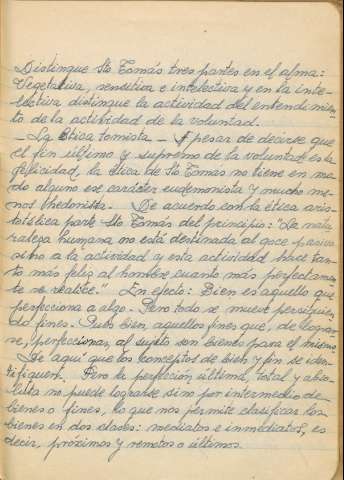 Distingue Sto Tomás tres partes en el alma:
Vegetativa, sensitiva e intelectiva y en la inte-
lectiva distingue la actividad del entendimien-
to de la actividad de la voluntad.
- La Etica tomista - A pesar de decirse que
el fin último y supremo de la voluntad es la
felicidad, la ética de Sto Tomás no tiene en mo-
do alguno ese carácter eudemonista y mucho me-
nos hedonista. De acuerdo con la ética aris-
totélica parte Sto Tomás del principio: "La natu
raleza humana no está destinada al goce pasivo
sino a la actividad y esta actividad hace tan-
to más feliz al hombre cuanto más perfectamen-
te se realice." En efecto: Bien es aquello que
perfecciona a algo. Pero todo se mueve persiguien
do fines. Pues bien, aquellos fines que, de lograr-
se, perfeccionan al sujeto son bienes para el mismo.
De aquí que los conceptos de bien y fin se iden-
tifiquen. Pero la perfección última, total y abso-
luta no puede lograrse sino por intermedio de
bienes o fines, lo que nos permite clasificar los
bienes en dos clases: mediatos e inmediatos, es
decir, próximos y remotos o últimos.